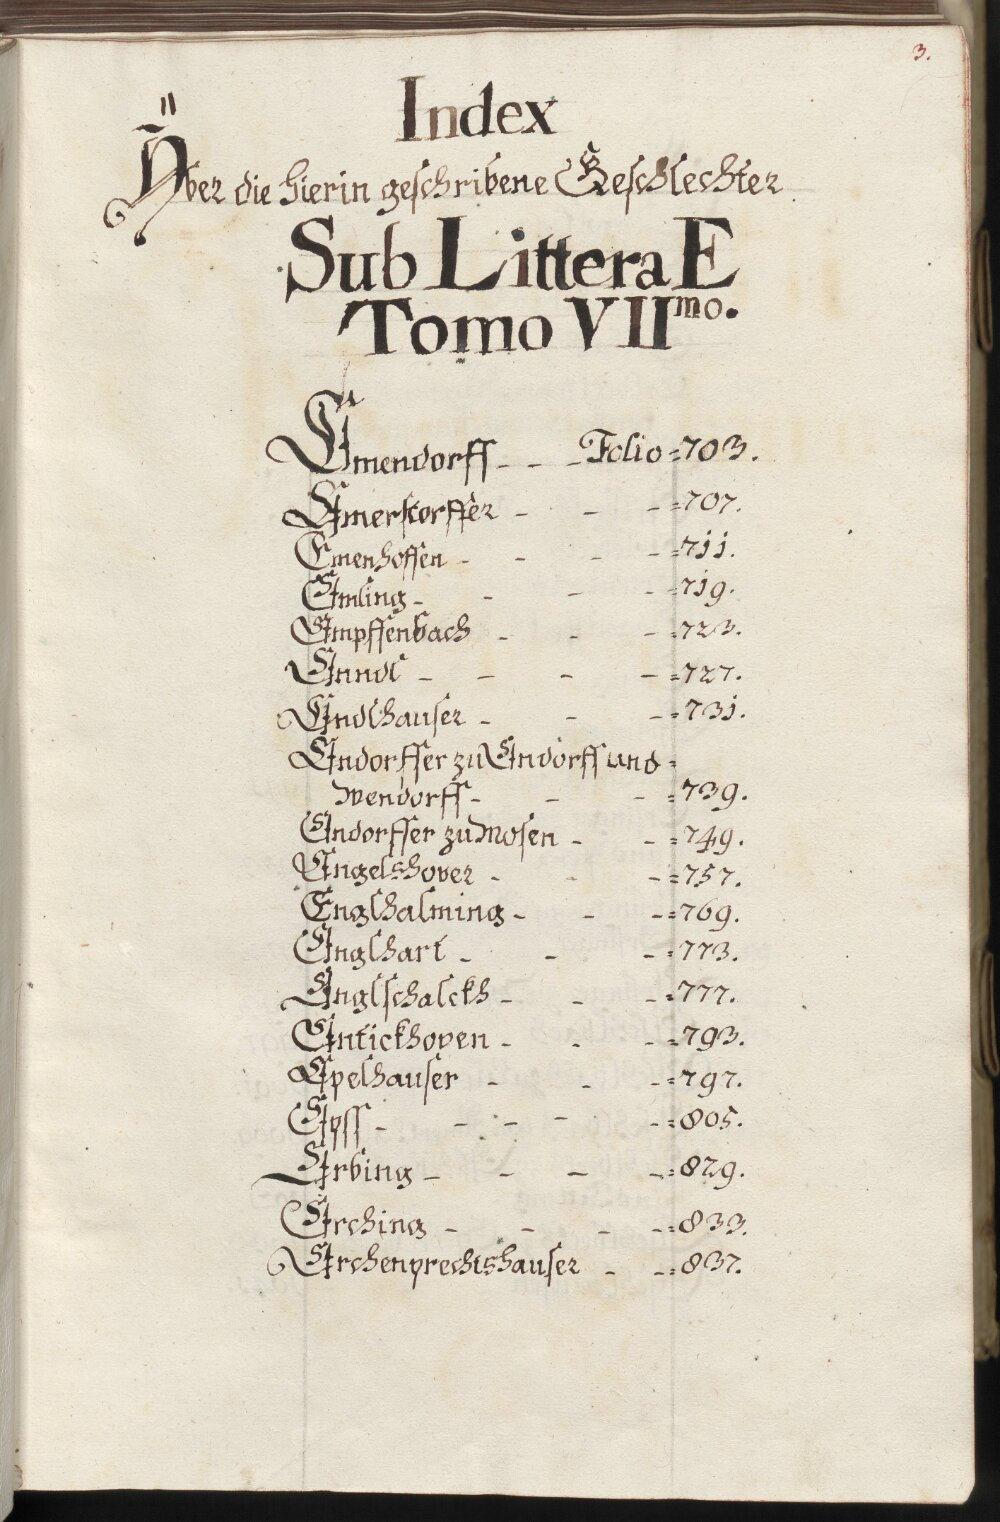 3.
Index
Über die hierin geschribene Geschlechter
Sub Littera E
Tomo VII mo.
Emendorff - - - Folio = 703.
Emerstorffer - - - = 707.
Emenhoffen - - - - = 711.
Emling - - - - = 719.
Empffenbach - - - = 723.
Enndl - - - - = 727.
Endlhauser - - - = 731.
Endorffer zu Endorff und =
Wendorff - - - = 739.
Endorffer zu Mosen - - = 749.
Engelshover - - - = 757.
Englhalming - - - = 769.
Englhart - - - = 773.
Englschalckh - - - = 777.
Entickhoven - - - = 793.
Epelhauser - - - = 797.
Epss - - - - - = 805.
Erbing - - - - = 829.
Erching - - - - = 833.
Erchenprechtshauser - - = 837.